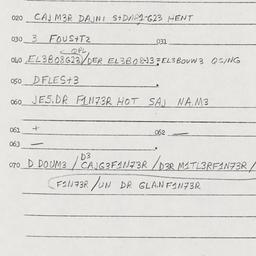 020 CAJ M3R DAJNI S+DAR1-G23 HENT
030 3 FOUS+T2 031
2PL
040 EL3BO8G23/DER EL3BO8N3 = EL3BOUW3 OSING
050 DFLES+3
060 JES.DR F1N73R HOT SAJ NA.M3
061 + 062 —
063 —
D3
070 D DOUM3 / CAJG3F1N73R / D3R M1TL3RF1N73R /
F1N73R / UN DR GLANF1N73R